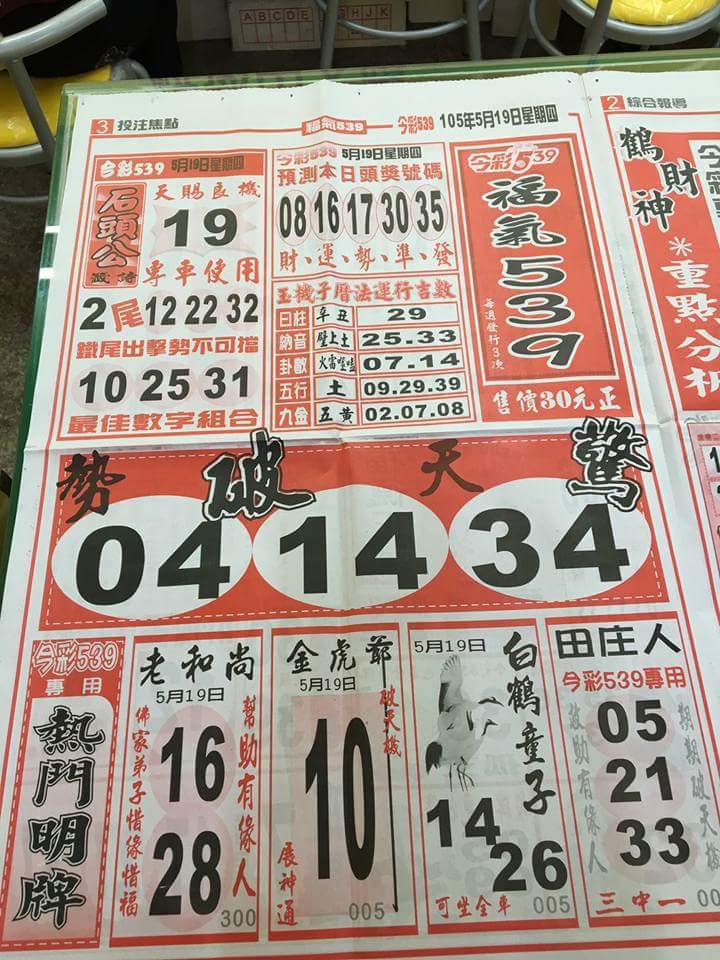 ABCDE
GHJK
3 投注焦點
福氣539
今彩539 105年5月19日星期四
2 綜合報導
今彩539 5月19日星期四
石頭公
天賜良機
19
專車使用
2尾 12 22 32
鐵尾出擊勢不可擋
10 25 31
最佳數字組合
今彩539 5月19日星期四
預測本日頭獎號碼
08 16 17 30 35
財、運、勢、準、發
玉機子曆法運行吉數
日柱 辛丑 29
納音 壁上土 25.33
卦數 火雷噬嗑 07.14
五行 土 09.29.39
九金 五黃 02.07.08
今彩539
福氣539
每週發行3次
售價30元正
鶴財神
今彩539
*重點分析
勢破天驚
04 14 34
今彩539
專用
熱門明牌
老和尚
5月19日
幫助有緣人
16
28
佛家弟子惜緣惜福
300
金虎爺
5月19日
破天機
10
展神通
005
5月19日
白鶴童子
14
26
可坐全車
005
田庄人
今彩539專用
期期破天機
05
21
33
救助有緣人
三中一
00